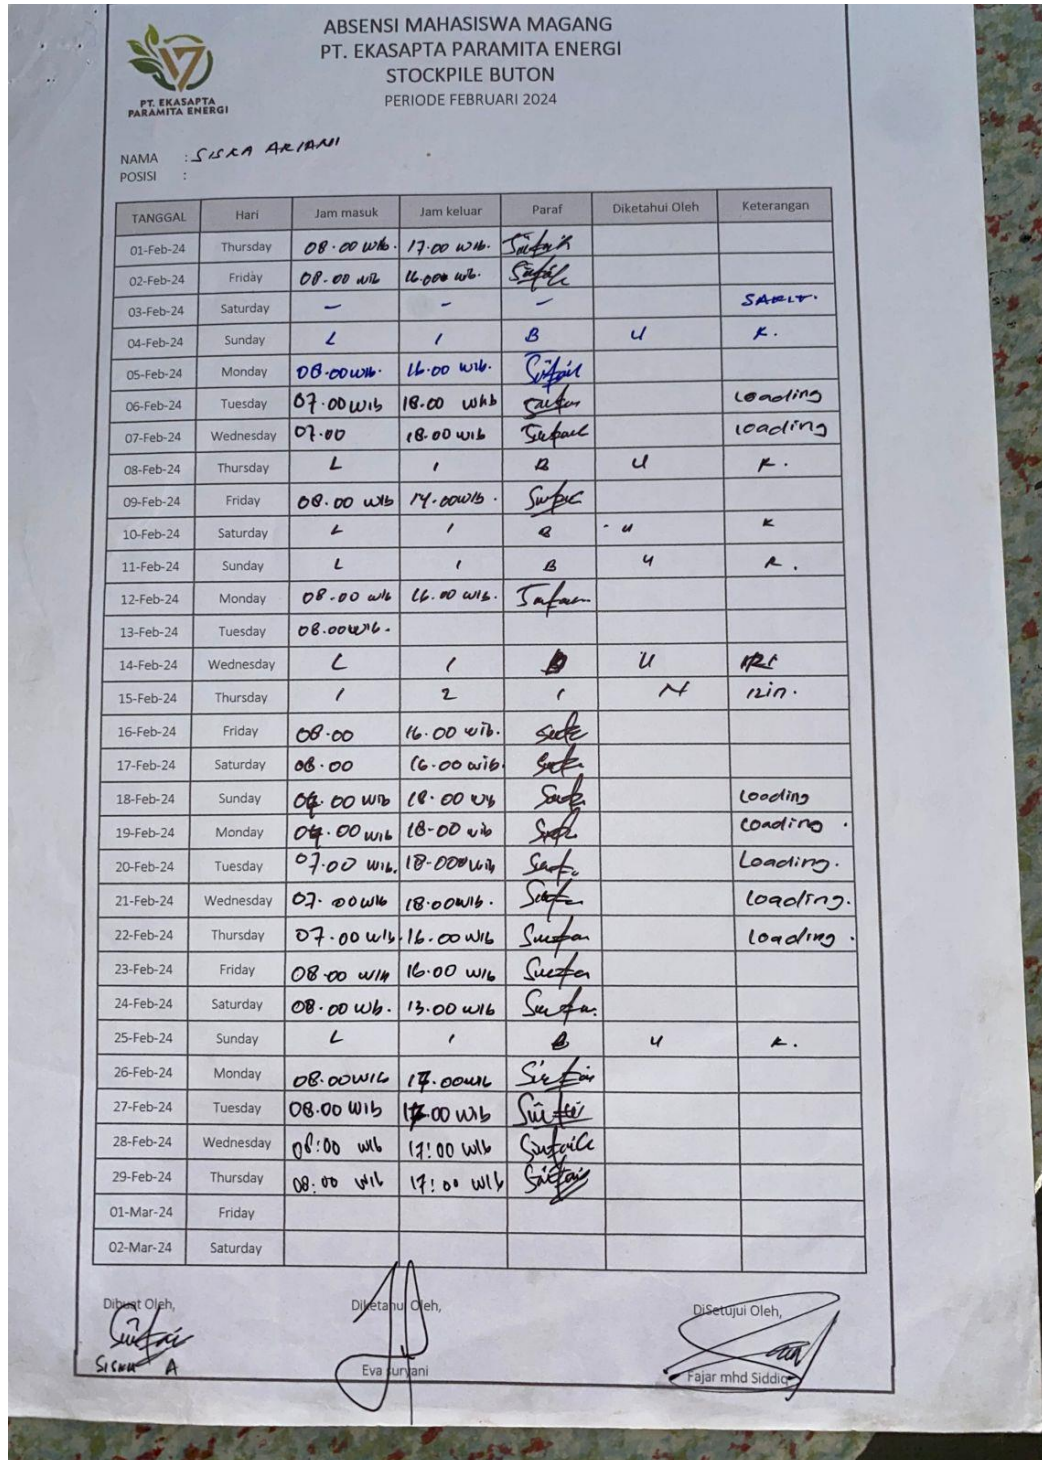 ABSENSI MAHASISWA MAGANG
PT. EKASAPTA PARAMITA ENERGI
STOCKPILE BUTON
PERIODE FEBRUARI 2024
PT. EKASAPTA
PARAMITA ENERGI
NAMA : SISKA ARIANI
POSISI :
TANGGAL Hari Jam masuk Jam keluar Paraf Diketahui Oleh Keterangan
01-Feb-24 Thursday 08.00 WIB. 17.00 WIB.
02-Feb-24 Friday 08.00 WIB 16.000 WIB.
03-Feb-24 Saturday - - - SAKIT.
04-Feb-24 Sunday L I B U R.
05-Feb-24 Monday 08.00 WIB. 16.00 WIB.
06-Feb-24 Tuesday 07.00 WIB 18.00 Loading
07-Feb-24 Wednesday 07.00 18.00 WIB Loading
08-Feb-24 Thursday L I B U R.
09-Feb-24 Friday 08.00 WIB 14.00 WIB.
10-Feb-24 Saturday L I B U R
11-Feb-24 Sunday L I B U R.
12-Feb-24 Monday 08.00 WIB 16.00 WIB.
13-Feb-24 Tuesday 08.00 WIB.
14-Feb-24 Wednesday L I B U
15-Feb-24 Thursday I 2 I N izin.
16-Feb-24 Friday 08.00 16.00 wib.
17-Feb-24 Saturday 08.00 16.00 wib.
18-Feb-24 Sunday 07.00 WIB 18.00 WIB Loading
19-Feb-24 Monday 07.00 WIB 18-00 wib Loading.
20-Feb-24 Tuesday 07.00 WIB. 18-000 WIB Loading.
21-Feb-24 Wednesday 07.00 WIB 18.00 WIB. Loading.
22-Feb-24 Thursday 07.00 WIB. 16.00 WIB Loading.
23-Feb-24 Friday 08.00 WIB 16.00 WIB
24-Feb-24 Saturday 08.00 Wb. 13.00 WIB
25-Feb-24 Sunday L I B U R.
26-Feb-24 Monday 08.00 WIB 17.00 WIB
27-Feb-24 Tuesday 08.00 WIB 17.00 WIB
28-Feb-24 Wednesday 08:00 WIB 17:00 WIB
29-Feb-24 Thursday 08:00 WIB 17:00 WIB
01-Mar-24 Friday
02-Mar-24 Saturday
Dibuat Oleh, Diketahui Oleh, DiSetujui Oleh,
SISKA A Eva suryani Fajar mhd Siddiq